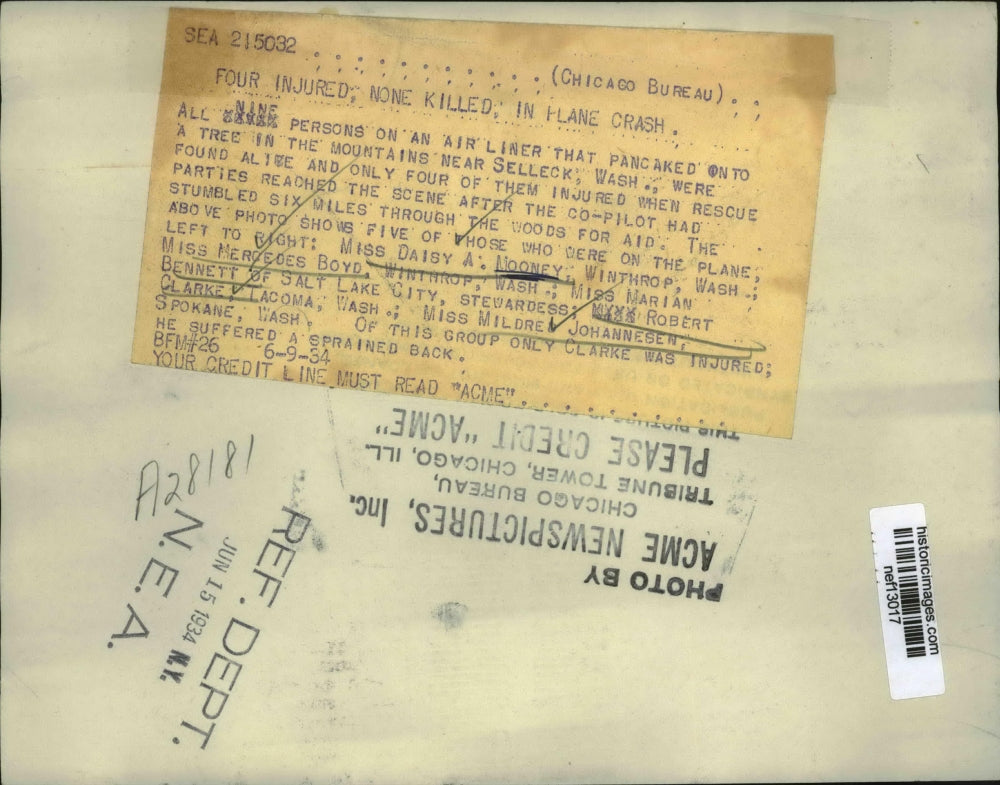 SEA 215032
(CHICAGO BUREAU)..
FOUR INJURED, NONE KILLED, IN PLANE CRASH.
NINE
ALL XXXXX PERSONS ON AN AIR LINER THAT PANCAKED ONTO
A TREE IN THE MOUNTAINS NEAR SELLECK, WASH., WERE
FOUND ALIVE AND ONLY FOUR OF THEM INJURED WHEN RESCUE
PARTIES REACHED THE SCENE AFTER THE CO-PILOT HAD
STUMBLED SIX MILES THROUGH THE WOODS FOR AID. THE
ABOVE PHOTO SHOWS FIVE OF THOSE WHO WERE ON THE PLANE,
LEFT TO RIGHT: MISS DAISY A. MOONEY, WINTHROP, WASH.;
MISS MERCEDES BOYD, WINTHROP, WASH.; MISS MARIAN
BENNETT OF SALT LAKE CITY, STEWARDESS; XXXX ROBERT
CLARKE, TACOMA, WASH.; MISS MILDRED JOHANNESEN,
SPOKANE, WASH. OF THIS GROUP ONLY CLARKE WAS INJURED;
HE SUFFERED A SPRAINED BACK.
BFM#26 6-9-34
YOUR CREDIT LINE MUST READ "ACME"
PHOTO BY
ACME NEWSPICTURES, Inc.
CHICAGO BUREAU,
TRIBUNE TOWER, CHICAGO, ILL.
PLEASE CREDIT "ACME"
THIS PICTURE IS
A28181
REF. DEPT.
JUN 15 1934 N.Y.
N.E.A.
historicimages.com
nef13017